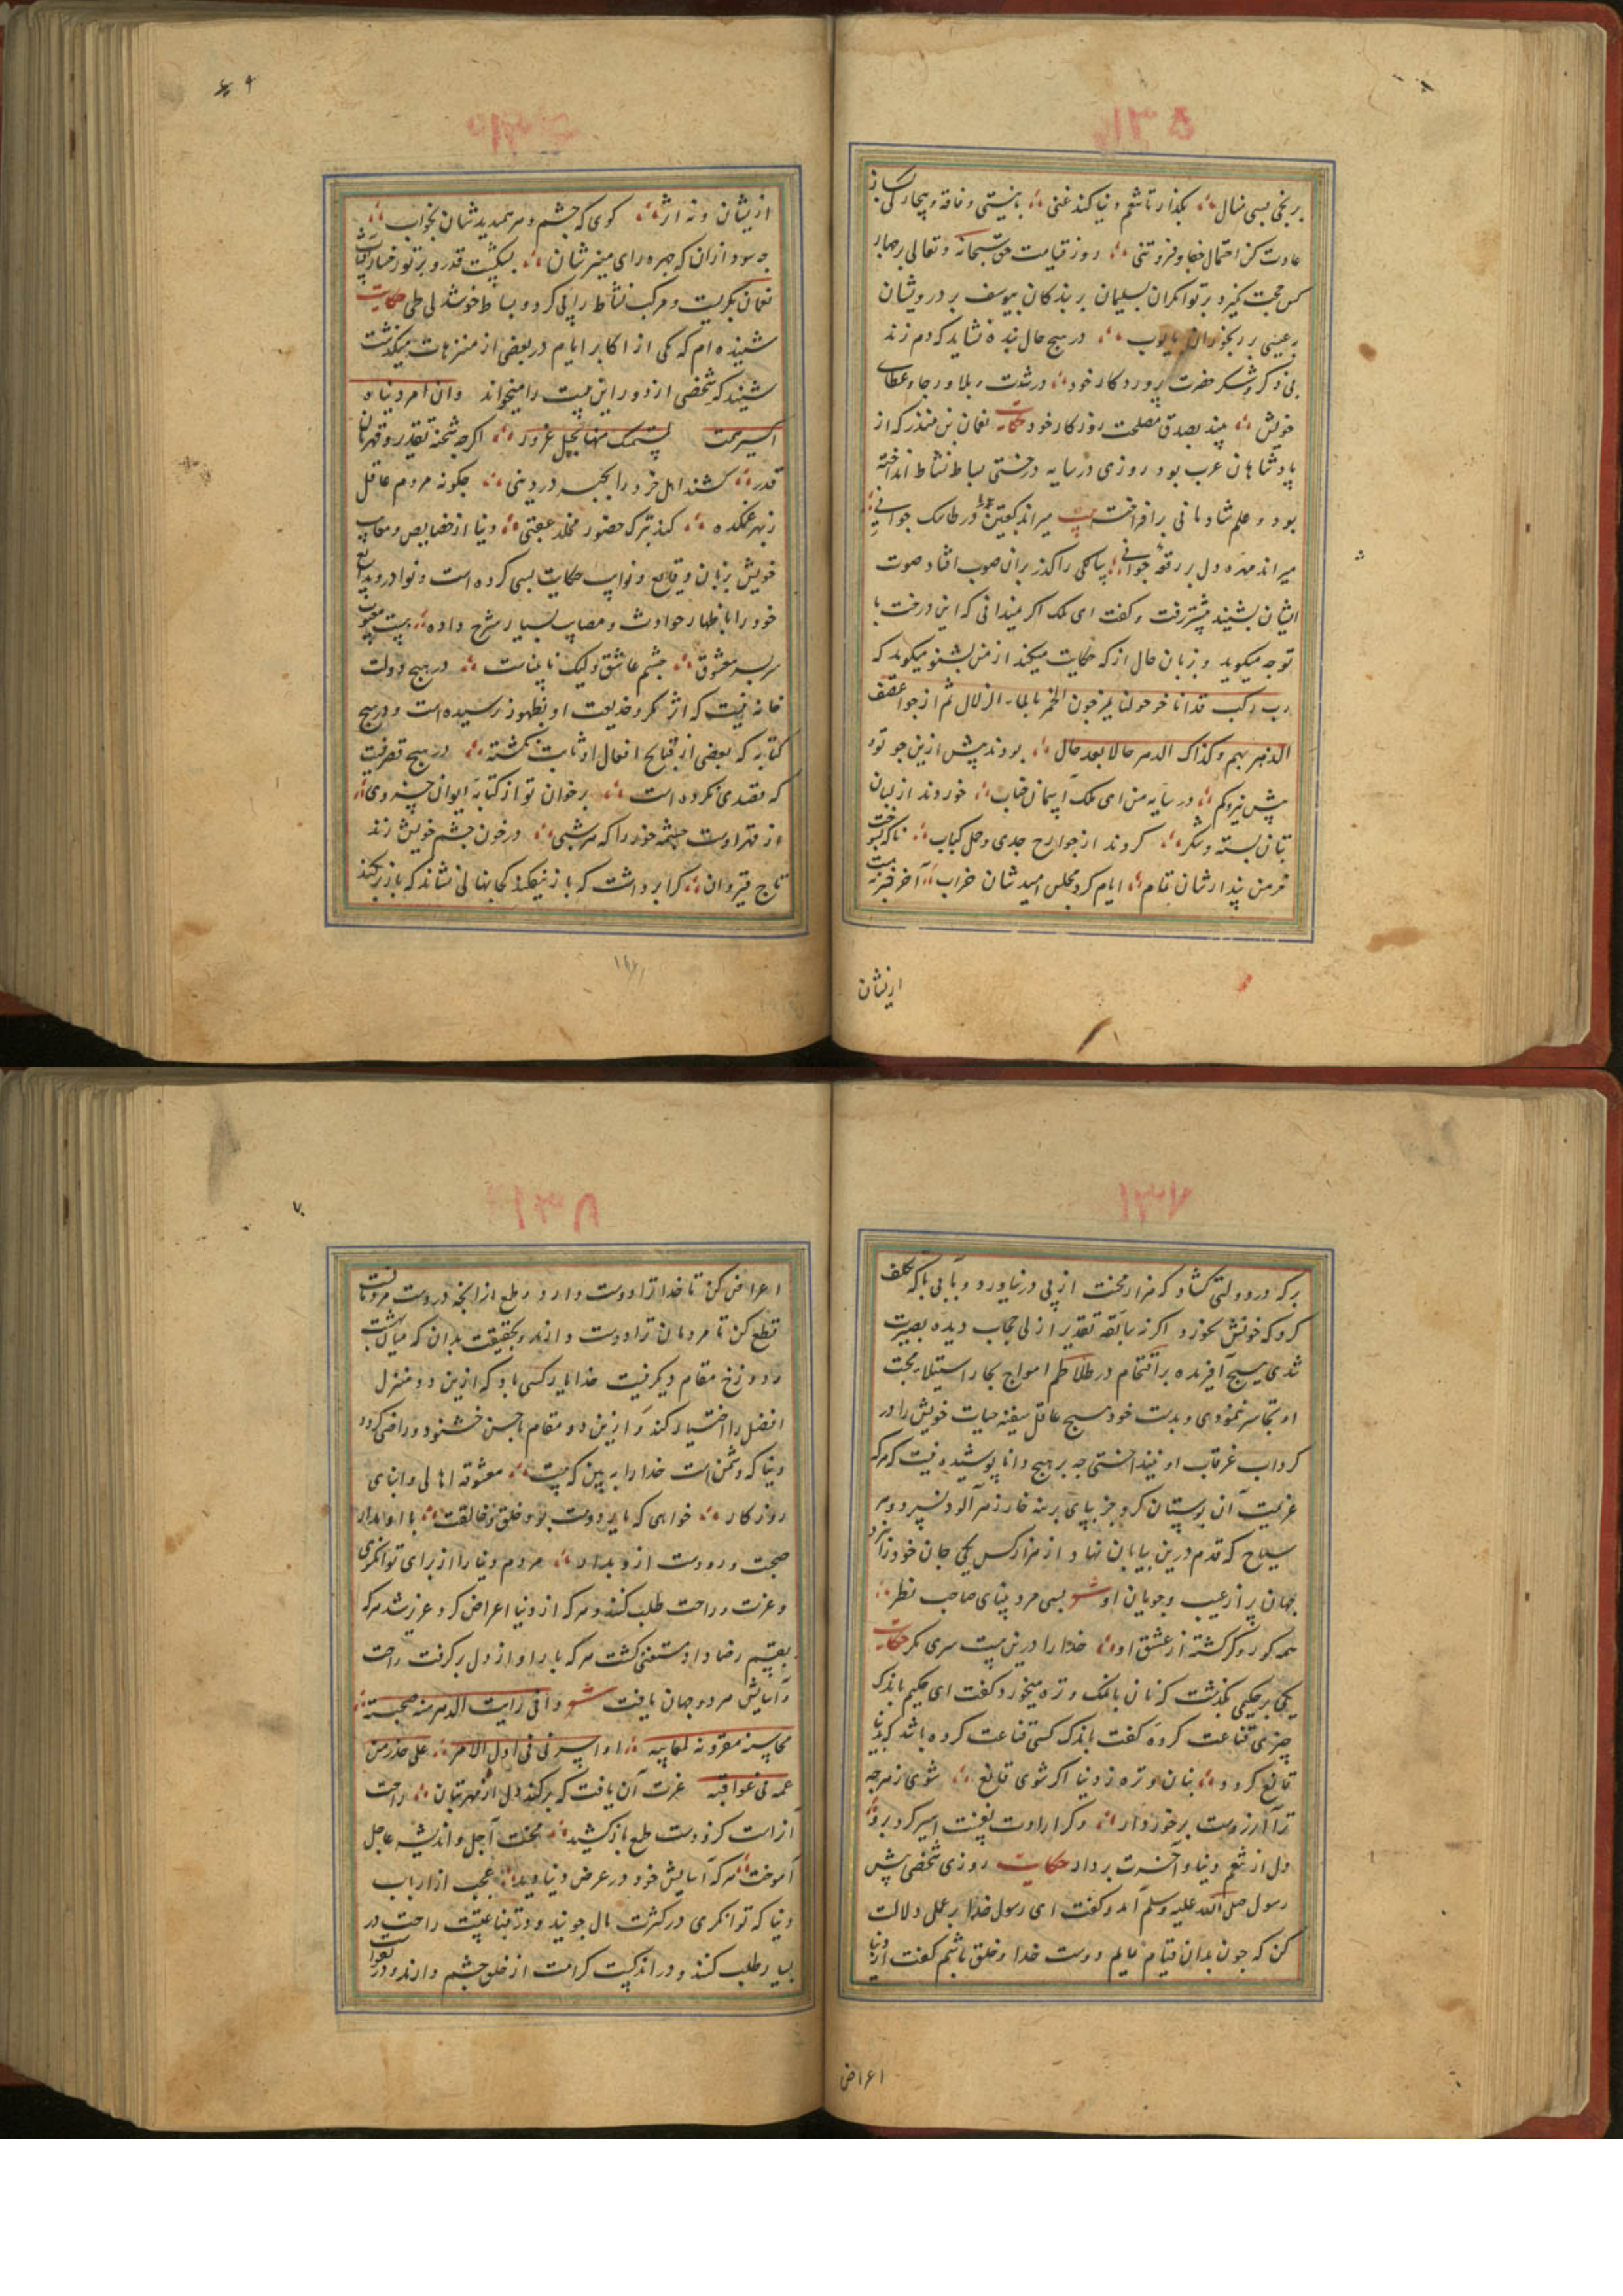 بر نجی بسی منال بگذار تا تنعم دنیا کند غنی با نیستی و فاقه و بیچارگی بساز
عادت کن احتمال جفا و فروتنی روز قیامت حق سبحانه و تعالی بر چهار
کس حجت گیرد بر توانگران بسلیمان بر بندگان بیوسف بر درویشان
بعیسی بر رنجوران بایوب در هیچ حال بنده نشاید که دم زند
بی ذکر و شکر حضرت پروردکار خود در شدت و بلا و رجا و عطای
خویش بیند بصدق مصلحت روزکار خود حکایت نعمان بن منذر که از
پادشاهان عرب بود روزی در سایه درختی بساط نشاط انداخته
بود و علم شادمانی برافراخت میراند کعبتین در طاسک جوانی
میراند مهره دل بر رقعه جوانی را گذر بران صوب افتاد صوت
ایشان بشنید پیشتر رفت و کفت ای ملک اکر میدانی که این درخت با
تو چه میکوید و زبان حال از که حکایت میکند از من بشنو میکوید که
رب رکب قد اناخوا حولنا یمزجون الخمر بالماء الزلال ثم
الدهر بهم و کذاک الدهر حالا بعد حال بودند پیش ازین چو تو
در سایه من ای ملک خوردند از لبان
بتان بسته و شکر کردند از جوارح جدی و حمل کباب
خرمن پندارشان تمام ایام کرد مجلس امیدشان خراب آخر
ازیشان
ازیشان و نه اثر کوی که چشم دهر ندید شان بخواب
چه سود ازان که
نعمان بکریست و مرکب نشاط را پی کرد و بساط خوشدلی طی حکایت
شنیده ام که یکی از اکابر ایام در بعضی از متنزهات میکذشت
شنید که شخصی از دور این بیت را میخواند وان امرو دنیاه
اکبر همه لمستمسک منها بحبل غرور اکرچه شحنه تقدیر و قهرمان
قدر کشند اهل خرد را بجبر در دنیی چکونه مردم عاقل
بهر غمکده کند ترک حضور مخلد عقبی دنیا از خصایص و معایب
خویش بزبان وقایع و نوایب حکایت بسی کرده است و نوادر و بدایع
خود را باظهار حوادث و مصایب بسیار شرح داده
سربسر معشوق چشم عاشق ولیک نابیناست در هیچ دولت
خانه نیست که اثر مکر و خدیعت او بظهور نرسیده است و در هیچ
کتابه که بعضی از قبایح افعال او ثابت نکشته در هیچ قصر نیست
که مقصدی نکرده است بر خوان تو از کتابه ایوان خسروی
از قهر اوست چشمه خور را که هر شبی در خون چشم خویش زند
تاج قیروان کرا برداشت که باز نیفکند کجا نهالی نشاند که باز بر نکند
بر که در دولتی کشاد که هزار محنت از پی در نیاورد و با بی باکی تکلف
کرد که خونش نخورد اکر نه سابقه تقدیر ازلی حجاب دیده بصیرت
شدی هیچ آفریده بر اقتحام در تلاطم امواج بحار استیلاء محبت
او تجاسر ننمودی و بدست خود هیچ عاقل سفینه حیات خویش را در
کرداب غرقاب او نینداختی چه بر هیچ دانا پوشیده نیست که هر که
عزیمت آن بوستان کرد جز بپای برهنه خار زهرآلود نسپرد و هر
سیاح که قدم درین بیابان نهاد از هزار کس یکی جان خود را نبرد
جهان پر از عیب و جویان او بسی مرد بینای صاحب نظر
همه کور و کر کشته از عشق او خدا را درین بیت سری نکر حکایت
یکی بر حکیمی بگذشت که نان با نمک و تره میخورد کفت ای حکیم باندک
چیزی قناعت کرده کفت باندک کسی قناعت کرده باشد که بدنیا
قانع کردد بنان و تره ز دنیا اکر شوی قانع شوی ز هرچه
ترا آرزوست برخوردار وکر ارادت نفست اسیر کرد برو
دل از تنعم دنیا و آخرت بردار حکایت روزی شخصی پیش
رسول صلی الله علیه وسلم آمد و کفت ای رسول خدا بر عملی دلالت
کن که چون بدان قیام نمایم دوست خدا و خلق باشم کفت از دنیا
اعراض
اعراض کن تا خدا ترا دوست دارد و طمع از آنچه در دست مردمانست
قطع کن تا مردمان ترا دوست دارند و بحقیقت بدان که میان بهشت
و دوزخ مقام دیکر نیست خدا یار کسی باد که ازین دو منزل
افضل را اختیار کند و ازین دو مقام باحسن خشنود و راضی کردد
دنیا که دشمن است خدا را ببین که چیست معشوقه اهالی و ابنای
روزکار خواهی که یار دوست بود خلق و خالقت با او مدار
صحبت و رو دست ازو بدار مردم دنیا را از برای توانکری
و عزت و راحت طلب کنند و هر که از دنیا اعراض کرد عزیز شد هر که
بقسیم رضا داد مستغنی کشت هر که بار او از دل برکرفت راحت
و آسایش هر دو جهان یافت شعر و انی رایت الدهر منذ صحبته
محاسنه مقرونه بمعایبه اذا سرنی فی اول الامر علی حذر من
غمه فی عواقبه عزت آن یافت که برکند دل از مهر بتان راحت
آنراست کزو دست طمع باز کشید محنت آجل و اندیشه عاجل
آموخت هر که آسایش خود در عرض دنیا دید عجب از ارباب
دنیا که توانکری در کثرت مال جویند و در قناعتست راحت در
بسیار طلب کنند و در اندکیست کرامت از خلق چشم دارند و در